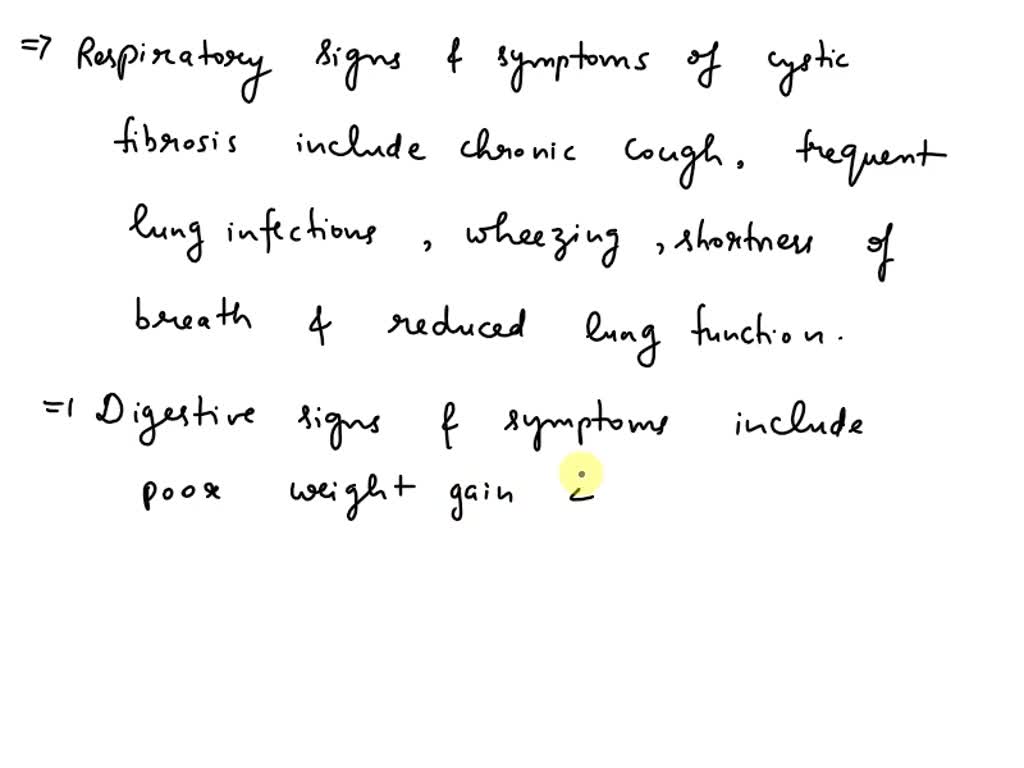 => Respiratory signs & symptoms of cystic
fibrosis include chronic cough, frequent
lung infections, wheezing, shortness of
breath & reduced lung function.
=> Digestive signs & symptoms include
poor weight gain